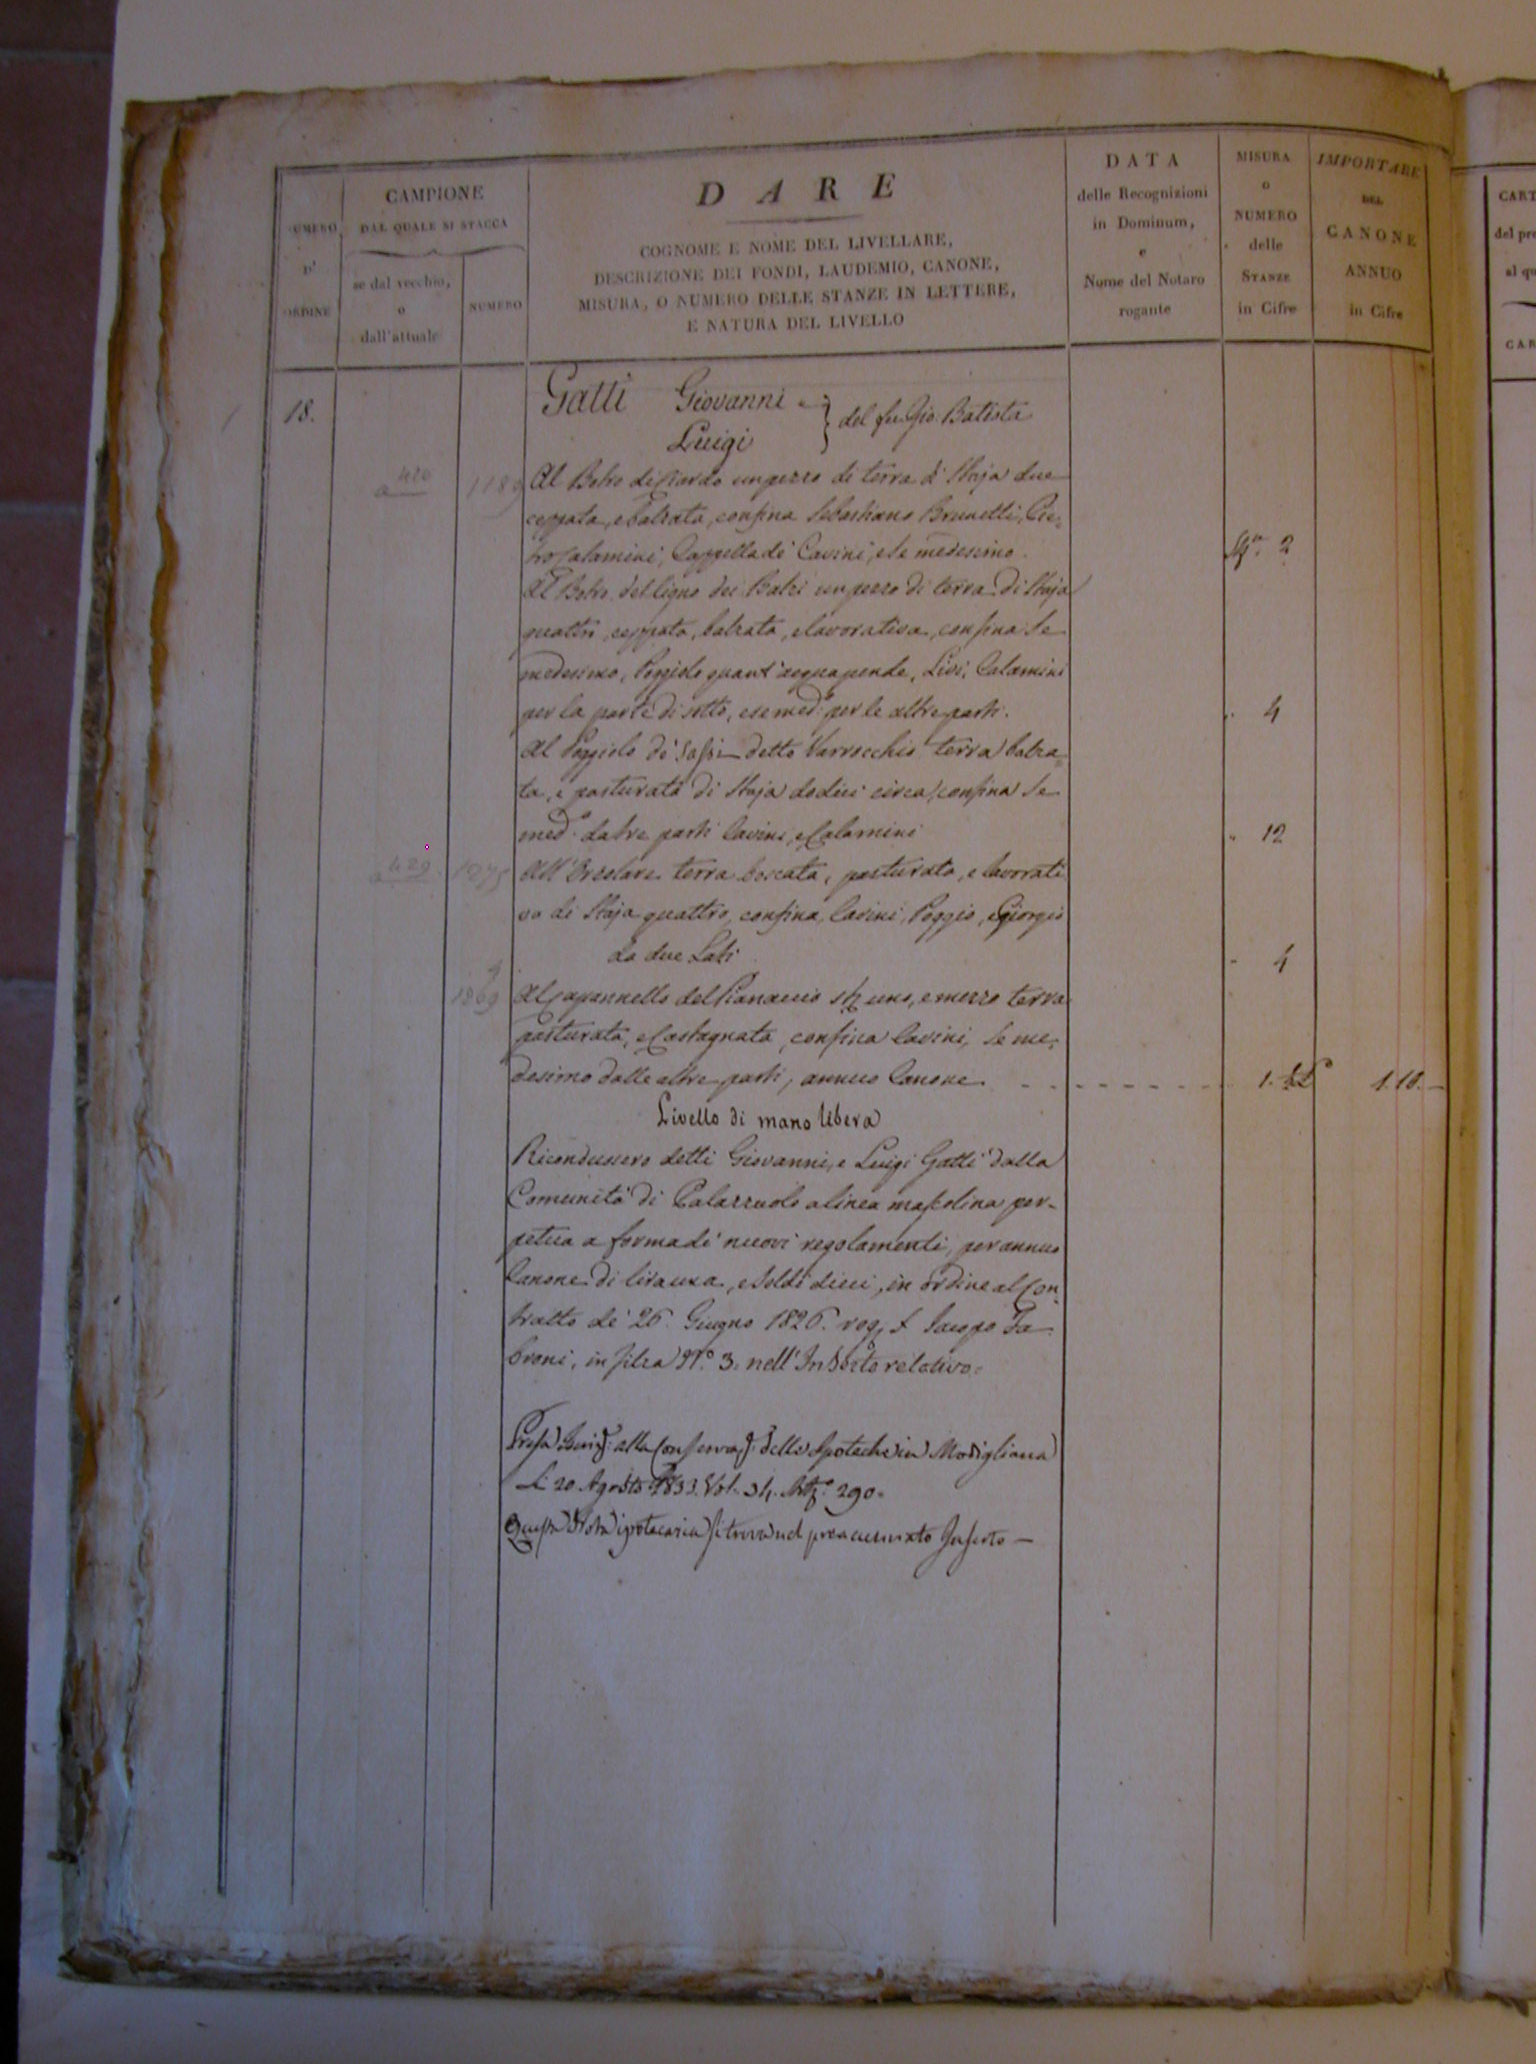 NUMERO
D'
ORDINE
CAMPIONE
DAL QUALE SI STACCA
se dal vecchio,
o
dall'attuale
NUMERO
DARE
COGNOME E NOME DEL LIVELLARE,
DESCRIZIONE DEI FONDI, LAUDEMIO, CANONE,
MISURA, O NUMERO DELLE STANZE IN LETTERE,
E NATURA DEL LIVELLO
DATA
delle Recognizioni
in Dominum,
e
Nome del Notaro
rogante
MISURA
o
NUMERO
delle
STANZE
in Cifre
IMPORTARE
DEL
CANONE
ANNUO
in Cifre
18.
Gatti Giovanni e } del fu Gio. Batista
Luigi
Al un pezzo di terra di Staja due
ceppata, e balzata, confina Sebastiano Brunetti, Pie-
tro Calamini, Cappella de' Cavini, e Se medesimo.
2
Al dei Balzi un pezzo di terra di Staja
quattro ceppata, balzata, e lavorativa, confina Se
medesimo, Poggiolo quant'acqua pende, Livi, Calamini
per la parte di sotto, e se med.o per le altre parti.
" 4
Al Poggiolo de' Sassi detto Varrocchio terra balza-
ta, e pasturata di Staja dodici circa, confina Se
med.o da tre parti Cavini, e Calamini
" 12
429
1275
All' terra boscata, pasturata, e lavorati
va di Staja quattro, confina, Cavini, Poggio, e Giorgio
da due Lati
" 4
1869
Al Capannello del Pianaccio uno, e mezzo terra
pasturata, e Castagnata, confina Cavini, Se me-
desimo dalle altre parti, annuo Canone
1.
1.10.—
Livello di mano libera
Ricondussero detti Giovanni, e Luigi Gatti dalla
Comunità di Palazzuolo a linea mascolina per-
petua a forma de' nuovi regolamenti, per annuo
Canone di lira una, e Soldi dieci, in ordine al Con
tratto de' 26. Giugno 1826. rog. S. Jacopo Fa
broni, in filza N.o 3. nell'Inserto relativo.
Presa Iscriz: alla Conservaz: delle Ipoteche in Modigliana
Li 20 Agosto 1833. Vol. 34. 290.
Questa Nota ipotecaria si trova nel preaccennato Inserto —
CAR